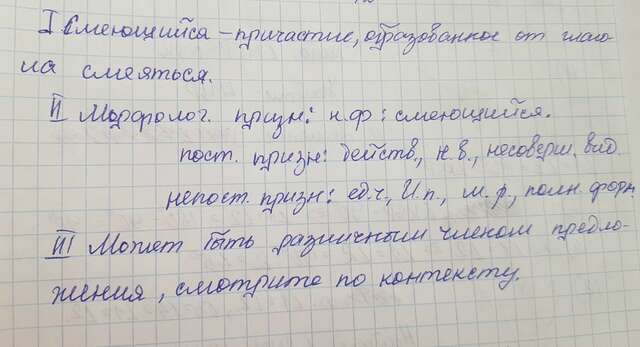 I Смеющийся – причастие, образованное от глаго
ла смеяться.
II Морфолог. призн: н.ф: смеющийся.
пост. призн: действ., н.в., несоверш. вид.
непост. призн: ед.ч, И.п., м.р., полн. форм.
III Может быть различным членом предло-
жения, смотрите по контексту.